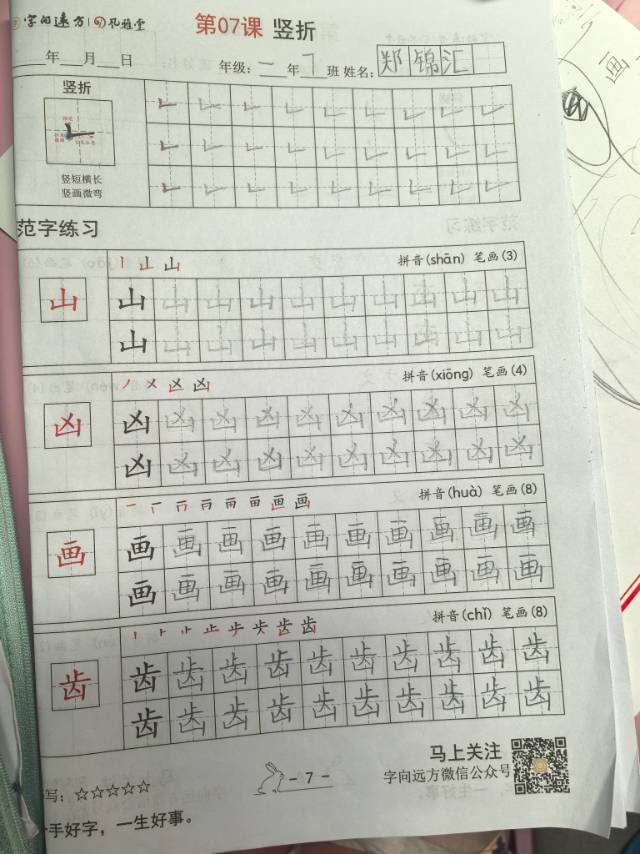 字向远方 孔雅堂
第07课 竖折
年 月 日
年级：一年7班 姓名：郑锦汇
竖折
竖短横长
竖画微弯
范字练习
山 拼音(shān) 笔画(3)
山
山山山山山山山山山山
山山山山山山山山山山
凶 拼音(xiōng) 笔画(4)
凶
凶凶凶凶凶凶凶凶凶凶
凶凶凶凶凶凶凶凶凶凶
画 拼音(huà) 笔画(8)
画
画画画画画画画画画画
画画画画画画画画画画
齿 拼音(chǐ) 笔画(8)
齿
齿齿齿齿齿齿齿齿齿齿
齿齿齿齿齿齿齿齿齿齿
马上关注
字向远方微信公众号
- 7 -
写：☆☆☆☆☆
手好字，一生好事。
画